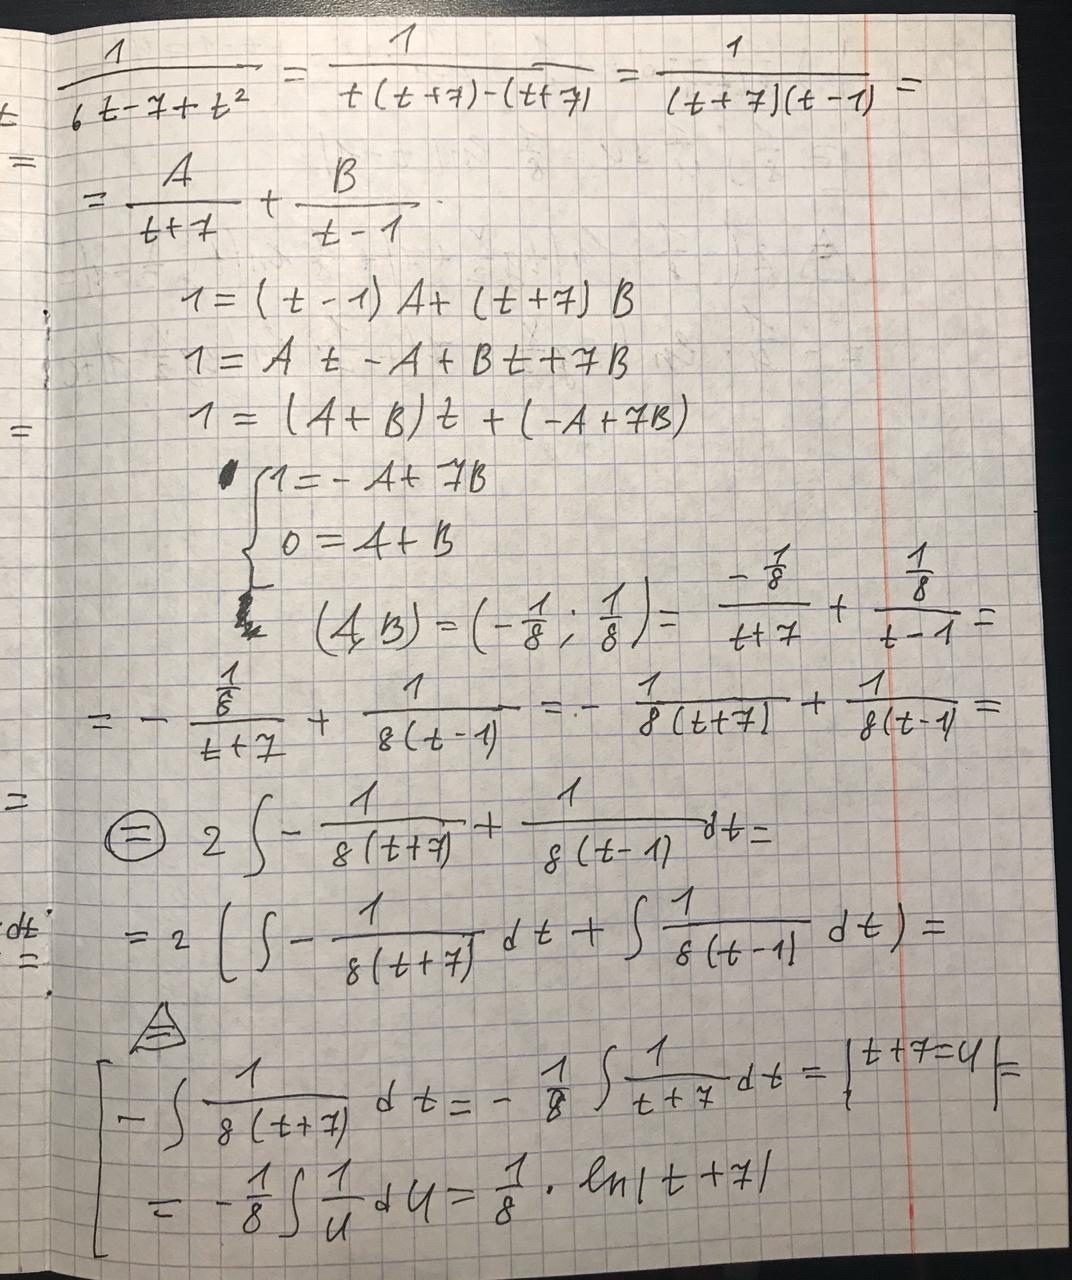 1/(6t-7+t²) = 1/(t(t+7)-(t+7)) = 1/((t+7)(t-1)) =
= A/(t+7) + B/(t-1)
1=(t-1)A+(t+7)B
1=At-A+Bt+7B
1=(A+B)t+(-A+7B)
{1=-A+7B
0=A+B
(A,B)=(-1/8; 1/8)= (-1/8)/(t+7) + (1/8)/(t-1) =
= - (1/8)/(t+7) + 1/(8(t-1)) = - 1/(8(t+7)) + 1/(8(t-1)) =
⊜ 2∫ - 1/(8(t+7)) + 1/(8(t-1)) dt=
= 2(∫ - 1/(8(t+7)) dt + ∫ 1/(8(t-1)) dt) =
[ - ∫ 1/(8(t+7)) dt = - 1/8 ∫ 1/(t+7) dt = |t+7=u| =
= - 1/8 ∫ 1/u du = 1/8 · ln|t+7|
t
=
=
=
dt
=